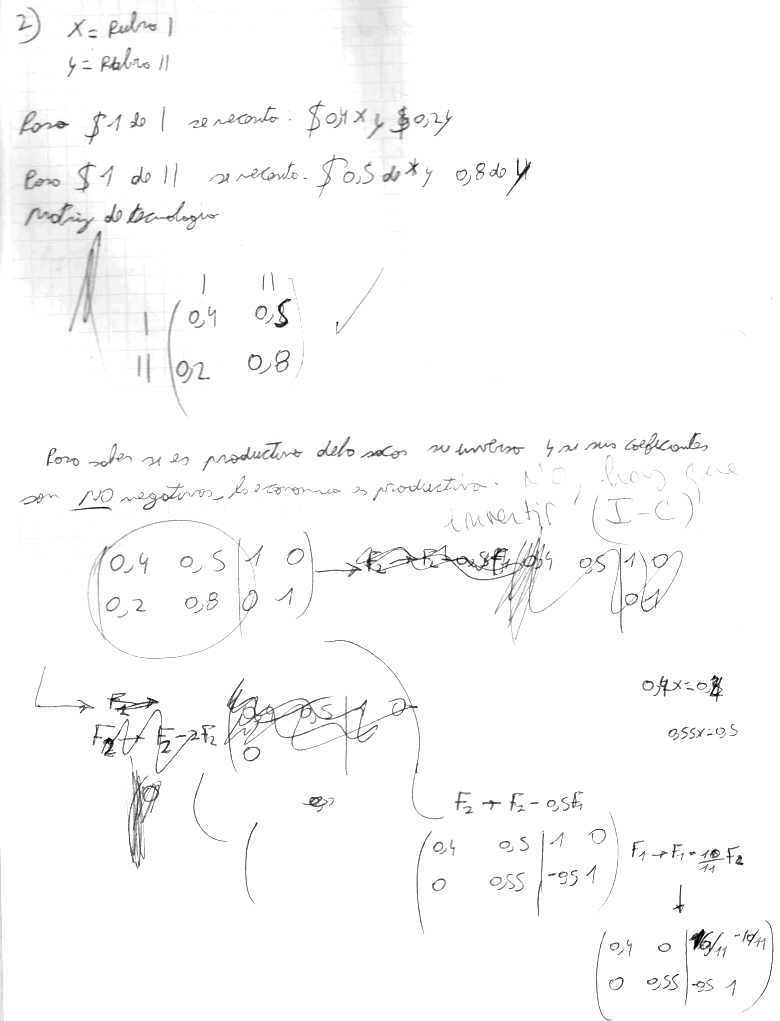 2) X = Rubro I
Y = Rubro II
Para $1 de I se necesita: $0,4 x y $0,2 y
Para $1 de II se necesita. $0,5 de x y 0,8 de y
Matriz de tecnologia
I II
I 0,4 0,5
II 0,2 0,8
Para saber si es productiva debo sacar su inversa y si sus coeficientes
son NO negativos, la economia es productiva. NO, hay que
invertir (I-C)
0,4 0,5 | 1 0
0,2 0,8 | 0 1
0,4 0,5 | 1 0
0 1
F2 → F2 - 2F2
0,5 1 0
0
0,55x=0,5
F2 → F2 - 0,5F1
0,4 0,5 | 1 0
0 0,55 | -0,5 1
F1 → F1 - 10/11 F2
0,4 0 | 16/11 -10/11
0 0,55 | -0,5 1